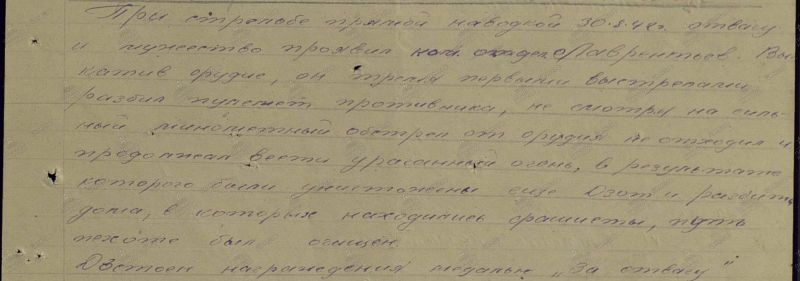 При стрельбе прямой наводкой 30.8.42г. отвагу
и мужество проявил ком. отдел. Лаврентьев. Вы-
катив орудие, он тремя первыми выстрелами
разбил пулемет противника, не смотря на силь-
ный минометный обстрел от орудия не отходил и
продолжал вести ураганный огонь, в результате
которого были уничтожены еще Дзот и разбиты
дома, в которых находились фашисты, путь
пехоте был очищен.
Достоен награждения медалью „За отвагу"